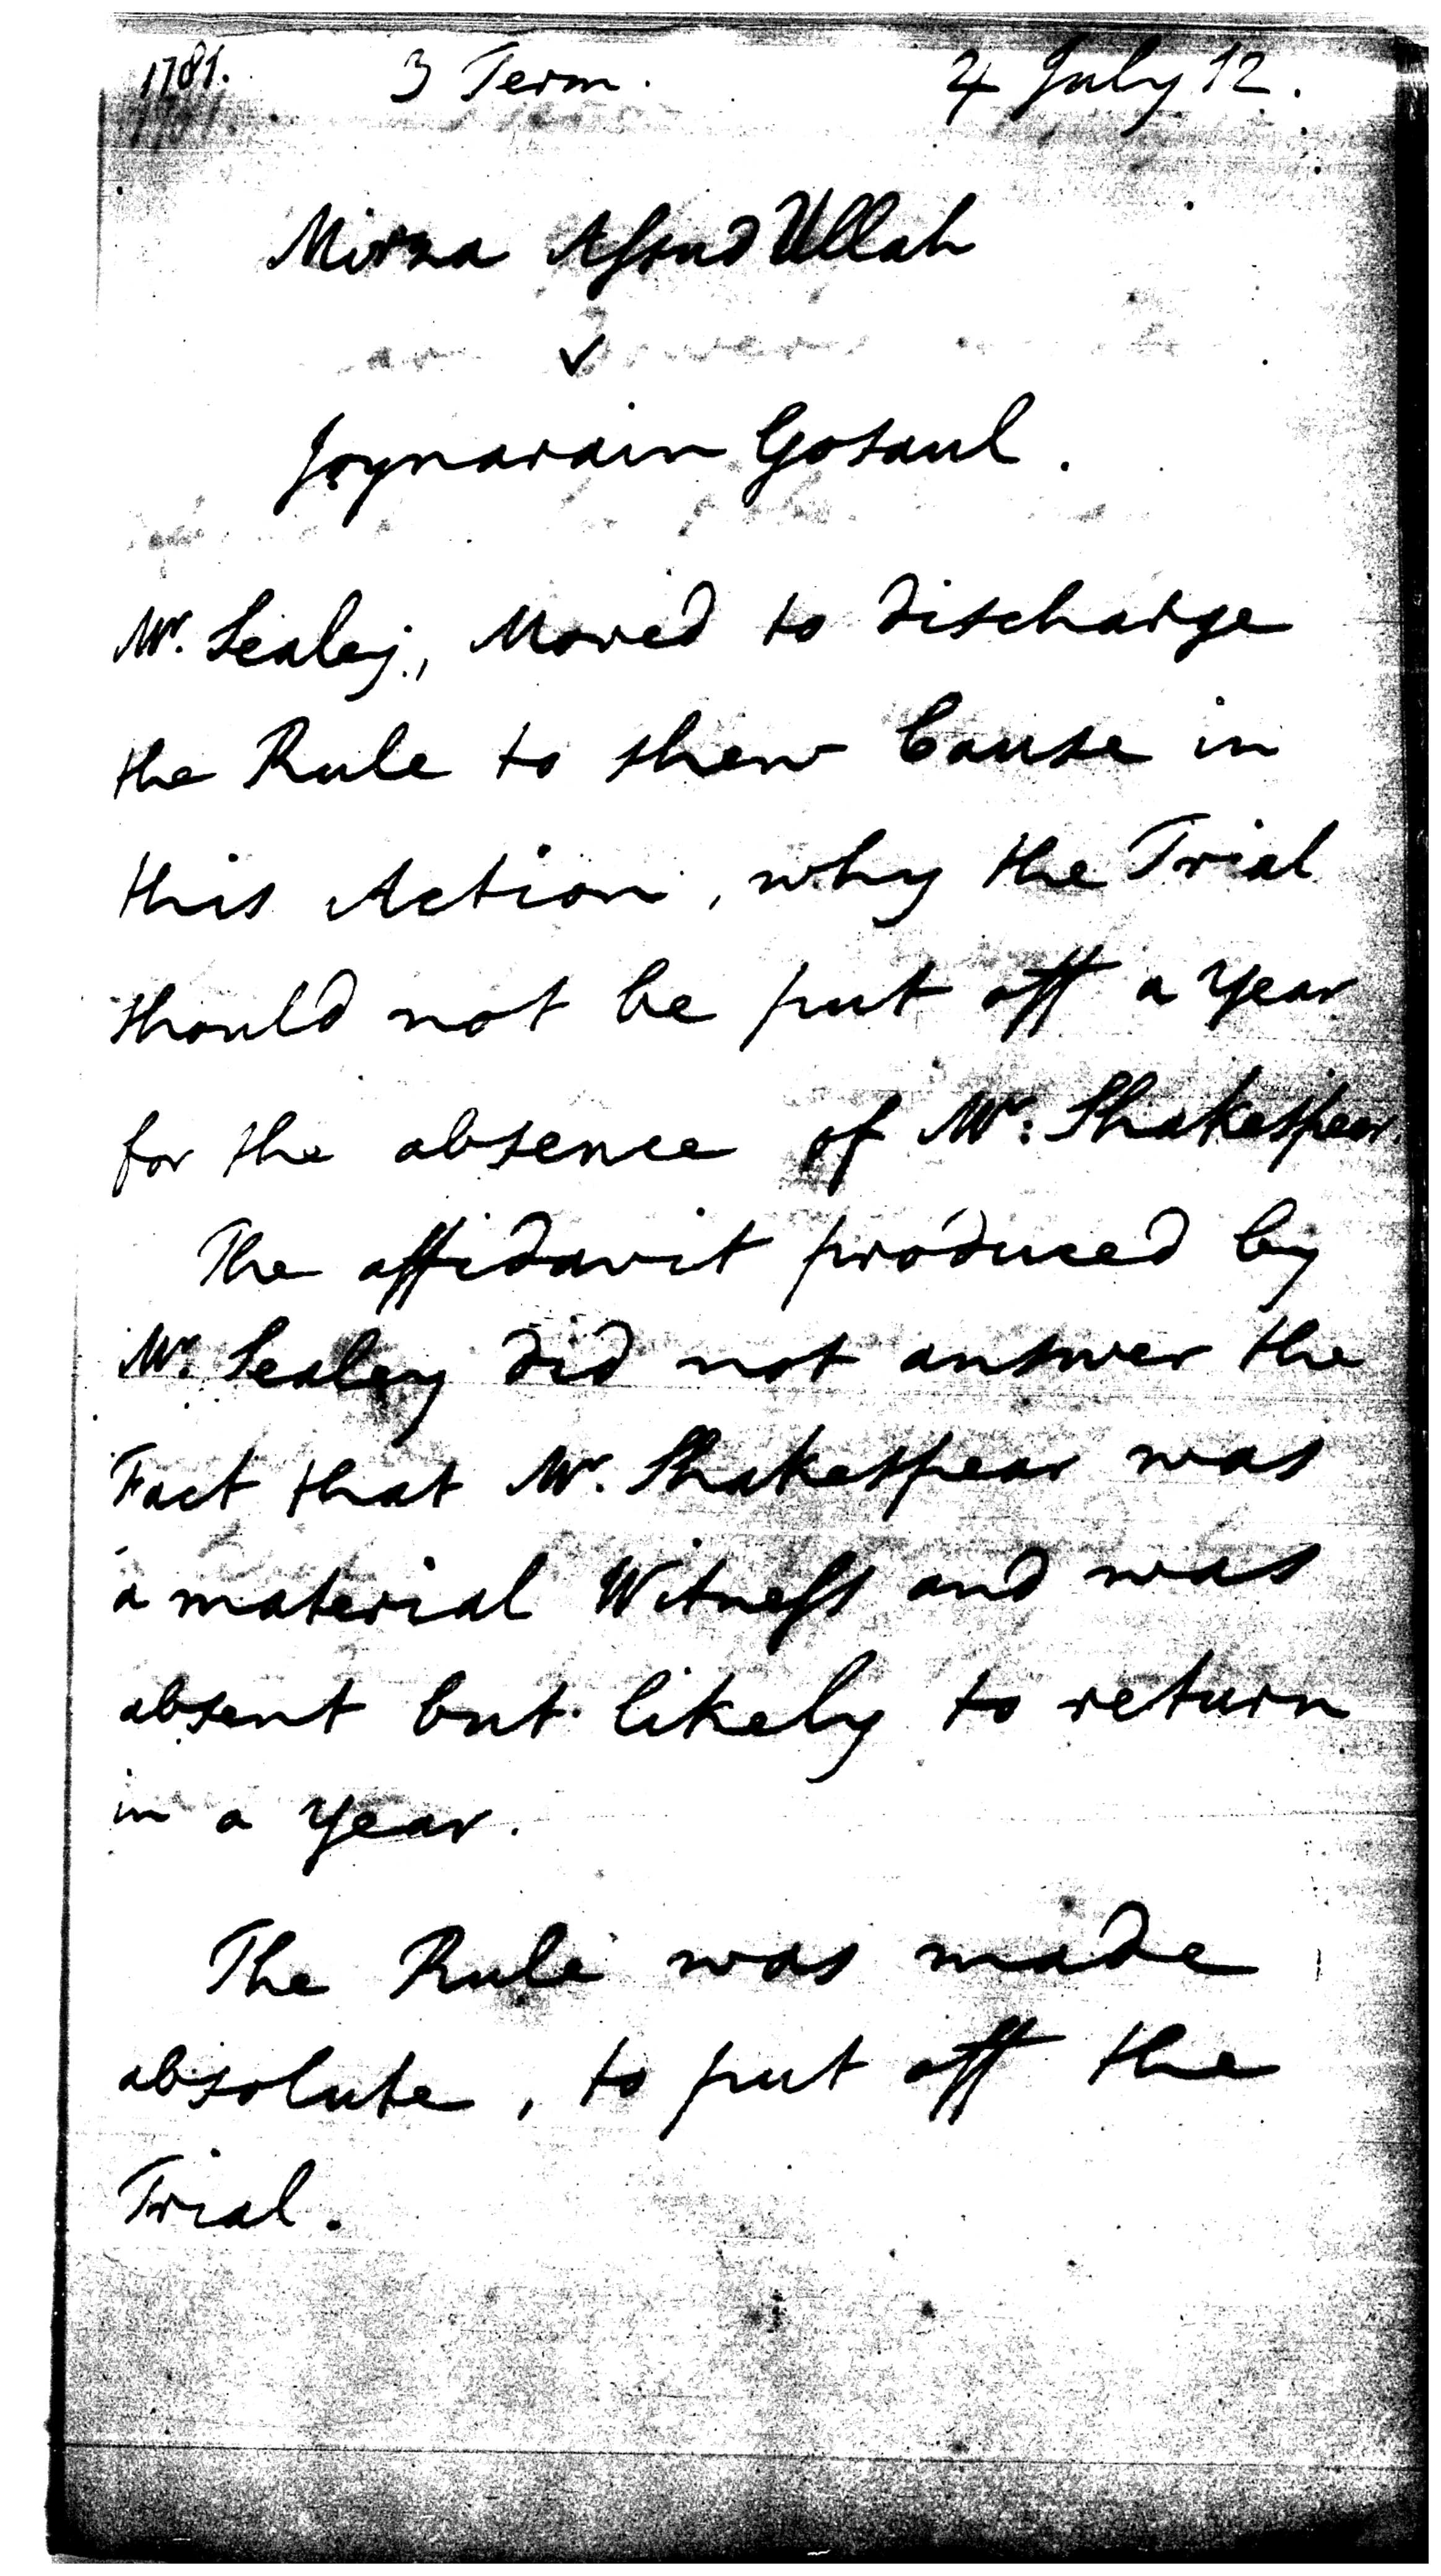 1781. 3 Term. 4 July 12.
Mirza Assud Ullah
v
Joynarain Gosaul.
Mr. Sealey, Moved to discharge
the Rule to shew Cause in
this Action, why the Trial
should not be put off a year
for the absence of Mr. Shakespear.
The affidavit produced by
Mr. Sealey did not answer the
Fact that Mr. Shakespear was
a material Witness and was
absent but likely to return
in a year.
The Rule was made
absolute, to put off the
Trial.